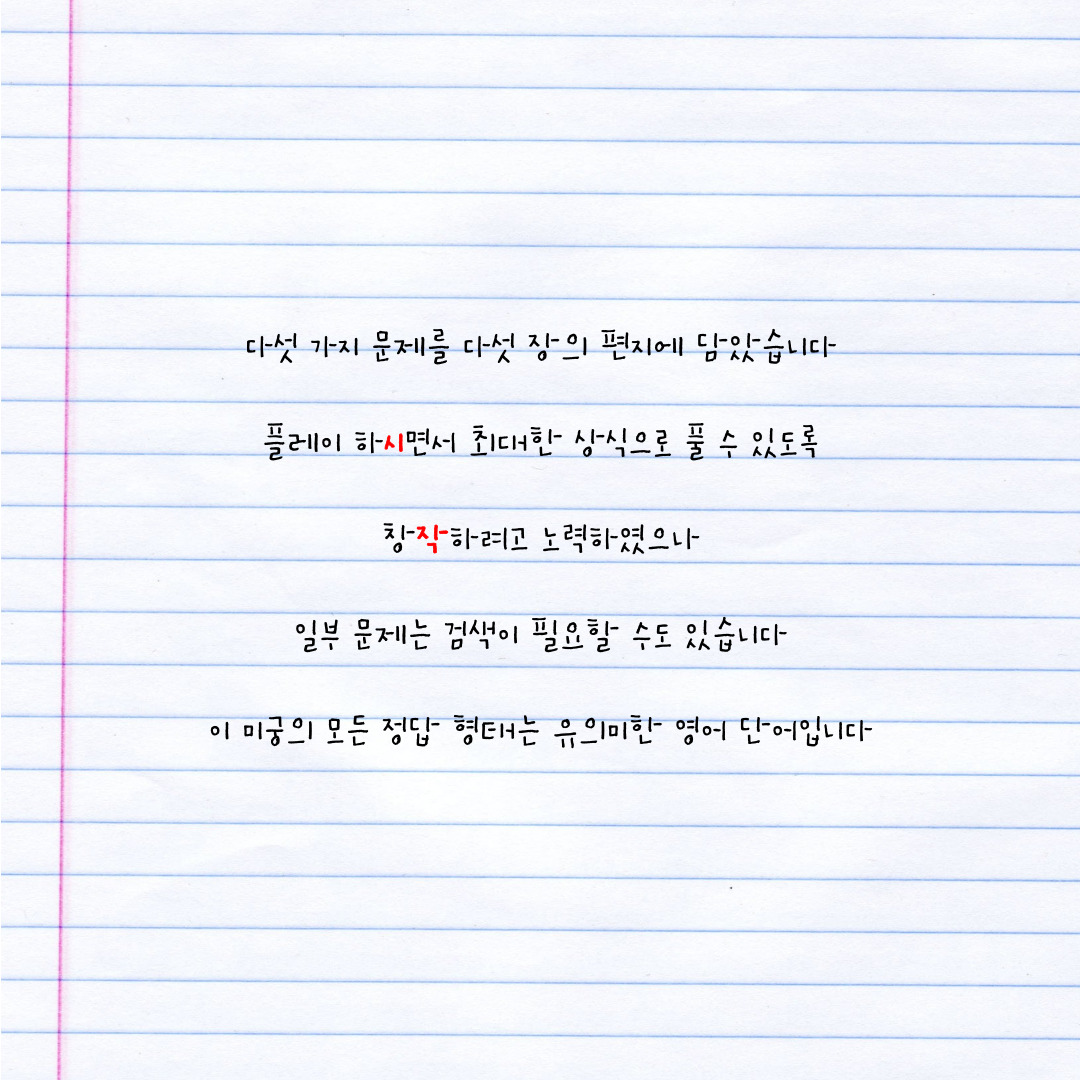 다섯 가지 문제를 다섯 장의 편지에 담았습니다
플레이 하시면서 최대한 상식으로 풀 수 있도록
창작하려고 노력하였으나
일부 문제는 검색이 필요할 수도 있습니다
이 미궁의 모든 정답 형태는 유의미한 영어 단어입니다